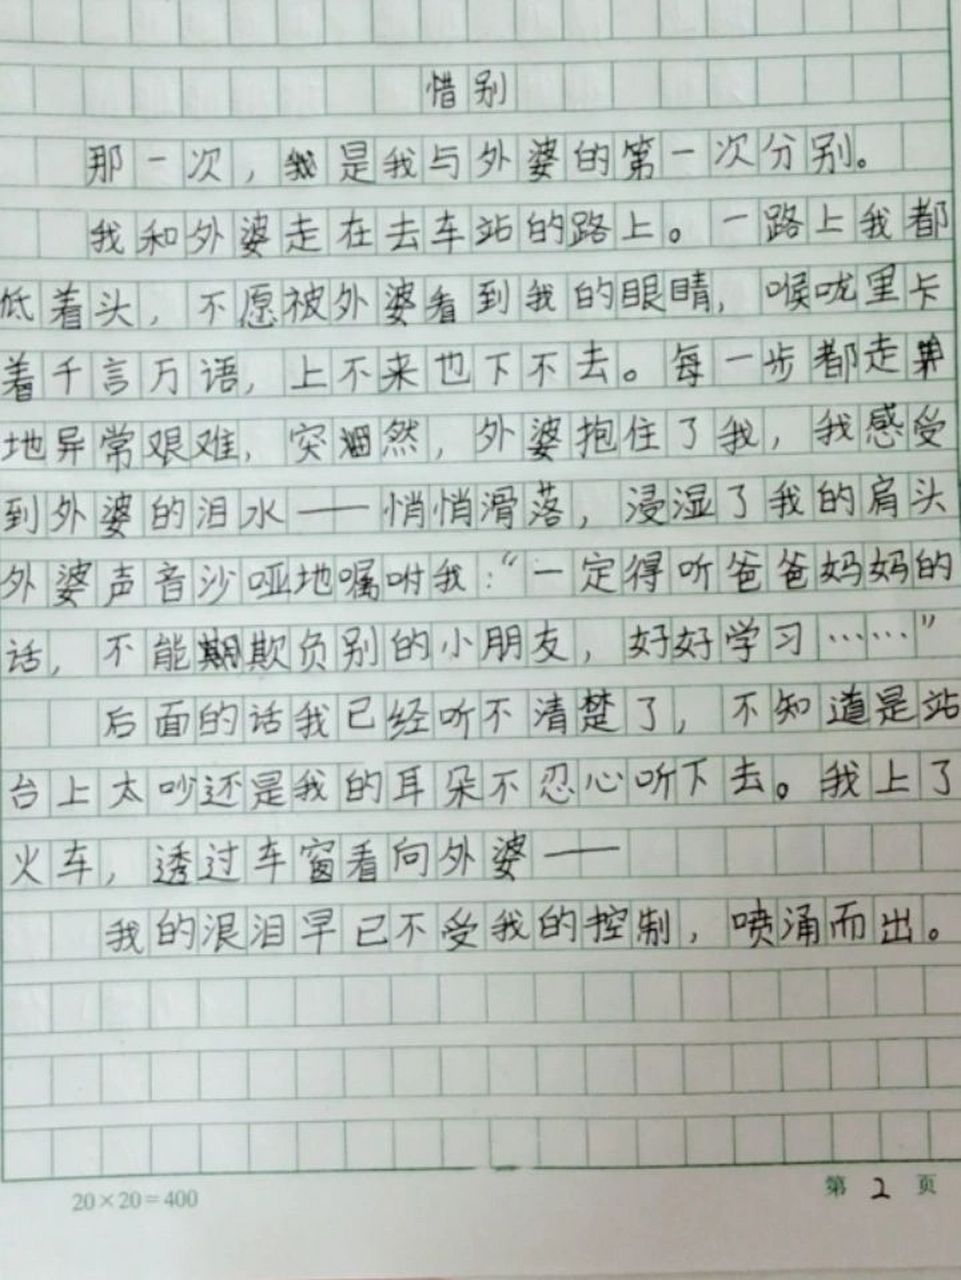 惜别
那一次，是我与外婆的第一次分别。
我和外婆走在去车站的路上。一路上我都
低着头，不愿被外婆看到我的眼睛，喉咙里卡
着千言万语，上不来也下不去。每一步都走
地异常艰难，突然，外婆抱住了我，我感受
到外婆的泪水——悄悄滑落，浸湿了我的肩头
外婆声音沙哑地嘱咐我：“一定得听爸爸妈妈的
话，不能欺负别的小朋友，好好学习……”
后面的话我已经听不清楚了，不知道是站
台上太吵还是我的耳朵不忍心听下去。我上了
火车，透过车窗看向外婆——
我的泪早已不受我的控制，喷涌而出。
20×20=400
第 2 页